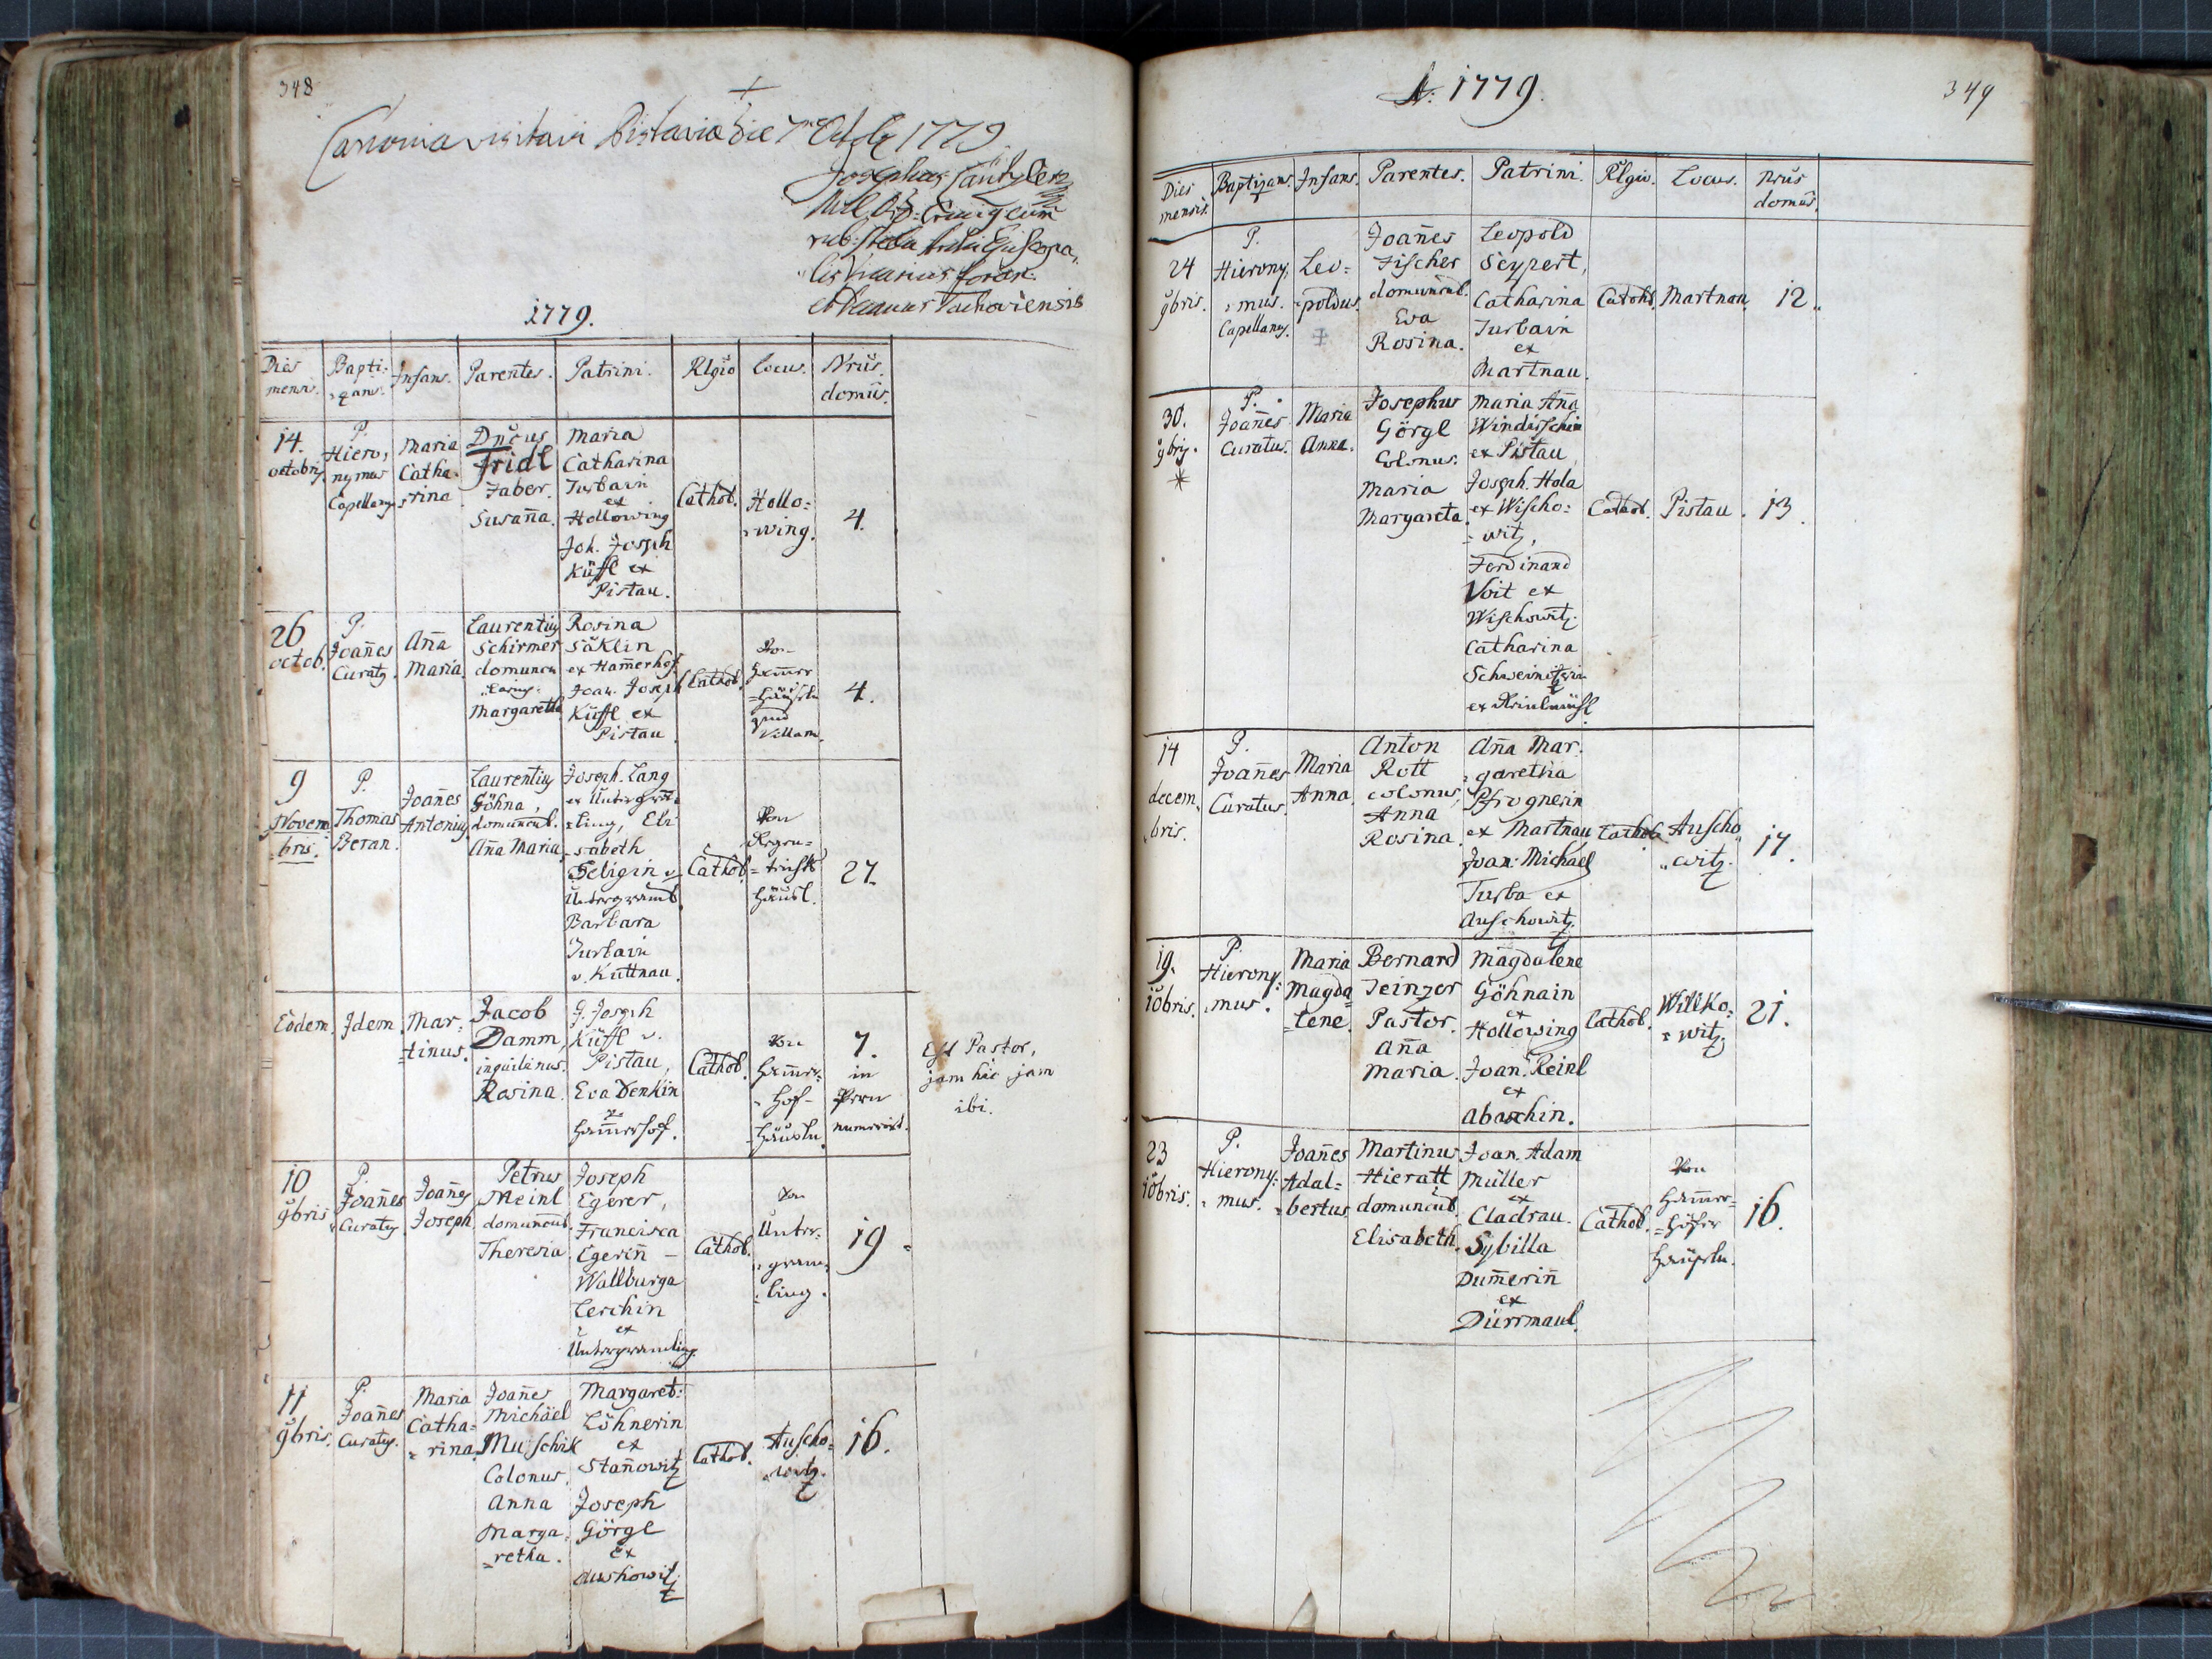 348
Canonice visitavi Pistaviæ die 7 1779
Josephus
Vicarius foran:
Tachoviensis
1779.
Dies mensis. Bapti: zans. Infans. Parentes. Patrini. Rlgio Locus. Nrus domus.
14. octobris P. Hiero, nymus Capellanus Maria Catha- rina
Fridl Faber. Susaña.
Maria
Catharina
Turbain
ex
Hollowing
Joh. Joseph
Küffl ex
Pistau.
Cathol. Hollo= wing. 4.
26 octob. P. Joañes Curatus. Aña Maria.
Laurentius
Schirmer
Margareth
Rosina
Säklin
ex Ham̃erhof
Joan. Joseph
Küffl ex
Pistau.
Cathol.
Villam.
4.
9 Novem bris. P. Thomas Beran. Joañes Antonius
Laurentius
Göhna,
domuncul.
Aña Maria
Joseph. Lang
Eli
sabeth
Barbara
Turbain
v. Kuttnau.
Cathol.
häusl.
27.
Eodem. Idem. Mar- tinus.
Jacob
Damm,
inquilinus.
Rosina.
J. Joseph
Küffl v.
Pistau,
Eva Denkin
Cathol.
7.
in
numerirt.
Est Pastor,
jam hic jam
ibi.
10 9bris P. Joañes Curatus Joañes Joseph
Petrus
Meinl
domuncul.
Theresia.
Joseph
Egerer,
Francisca
Egeriñ
Wallburga
Lerchin
ex
Untergramling.
Cathol.
Unter=
gram,
ling.
19
11 9bris. P. Joañes Curatus. Maria Catha= rina
Joañes
Michäel
Muschik
Colonus.
Anna
Marga=
retha.
Margaret:
Löhnerin
ex
Stañowitz
Joseph
Görgl
ex
Auschowitz
Cathol. Auscho= witz. 16.
A: 1779.
349
Dies mensis. Baptizans. Infans. Parentes. Patrini. Rlgio. Locus. Nrus domus.
24 9bris. P. Hierony, mus. Capellanus. Leo= poldus.
Joañes
Fischer
domuncul.
Eva
Rosina.
Leopold
Seypert,
Catharina
Turbain
ex
Martnau.
Cathol. Martnau 12.
30. 9bris. P. Joañes Curatus. Maria Anna.
Josephus
Görgl
Colonus.
Maria
Margareta.
Maria Aña
Windischin
ex Pistau,
Joseph. Hola
ex Wischo=
witz,
Ferdinand
Voit ex
Wischowitz.
Catharina
Cathol. Pistau. 13.
14 decem, bris. P. Joañes Curatus. Maria Anna.
Anton
Rott
colonus,
Anna
Rosina.
Aña Mar.
garetha
Pfrognerin
ex Martnau
Joan: Michäel
Turba ex
Auschowitz.
Cathol. Auscho witz. 17.
19. 10bris. P. Hierony: mus. Maria Magda= lene.
Bernard
Teinzer
Pastor.
Aña
Maria.
Magdalene
Göhnain
ex
Hollowing
Joan. Reinl
ex
Abaschin.
Cathol. Willko= witz. 21.
23 10bris. P. Hierony: mus. Joañes Adal= bertus
Martinus
Hieratt
domuncul.
Elisabeth.
Joan. Adam
Müller
ex
Cladrau.
Sybilla
Dum̃eriñ
ex
Dürrmaul.
Cathol.
16.